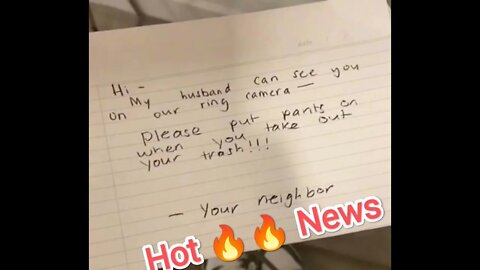 Hi -
My husband can see you
on our ring camera —
please put pants on
when you take out
your trash!!!
- Your neighbor
Hot 🔥🔥 News